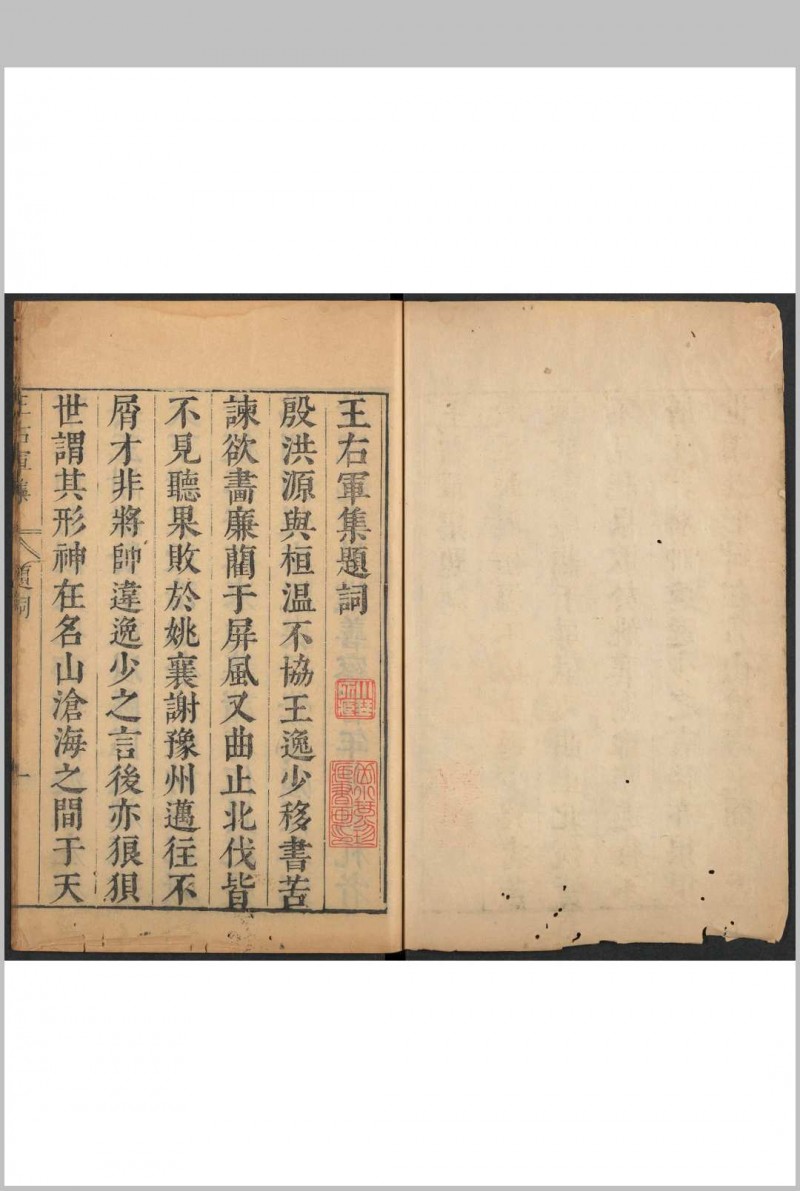 王右軍集題詞
殷洪源與桓溫不協王逸少移書苦
諫欲畵廉藺于屏風又曲止北伐皆
不見聽果敗於姚襄謝豫州邁往不
屑才非將帥違逸少之言後亦狼狽
世謂其形神在名山滄海之間于天
王右軍集
題詞
一